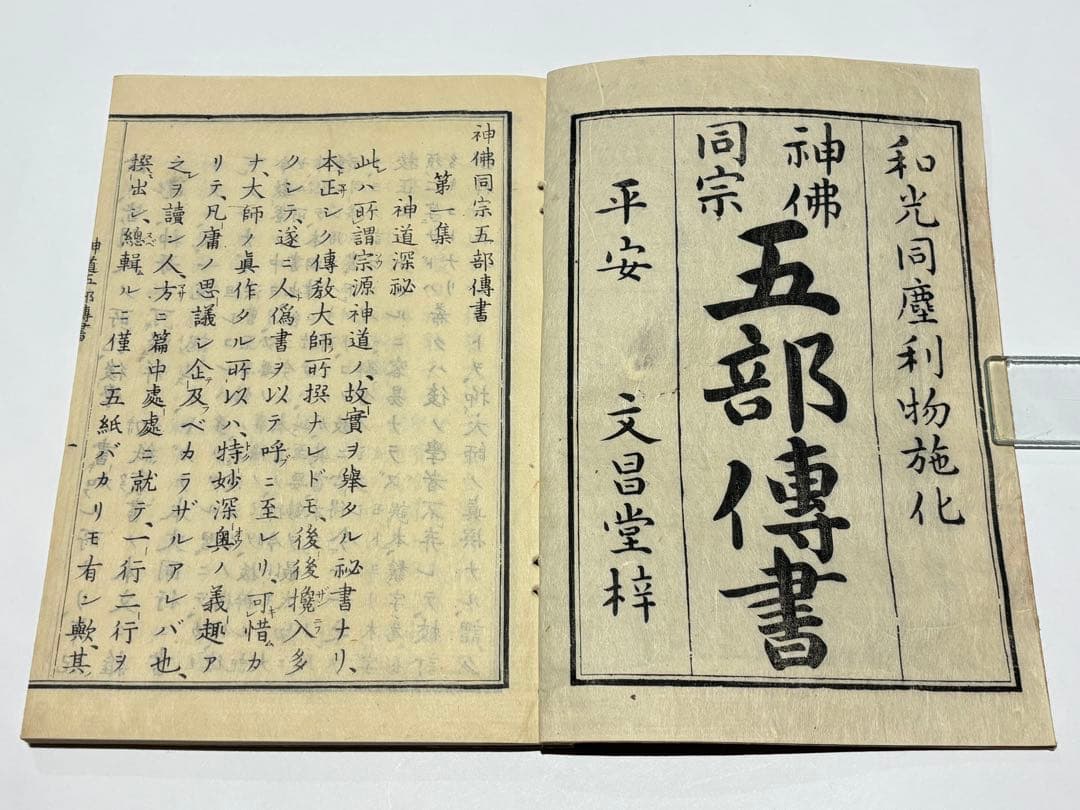 和光同塵利物施化
神佛
同宗
五部傳書
平安 文昌堂梓
神佛同宗五部傳書
第一集 神道深祕
此ハ所謂宗源神道ノ、故實ヲ擧タル祕書ナリ、
本正シク傳敎大師所撰ナレドモ、後後攙入多
クシテ、遂ニ人僞書ヲ以テ呼ニ至レリ、可惜カ
ナ、大師ノ眞作タル所以ハ、特妙深奧ノ義趣ア
リテ、凡庸ノ思議シ企及ベカラザルアレバ也、
之ヲ讀ン人、方ニ篇中處處ニ就テ、一行二行ヲ
撰出シ、總輯ルニ僅ニ五紙バカリモ有ン歟、其
神道五部傳書
一